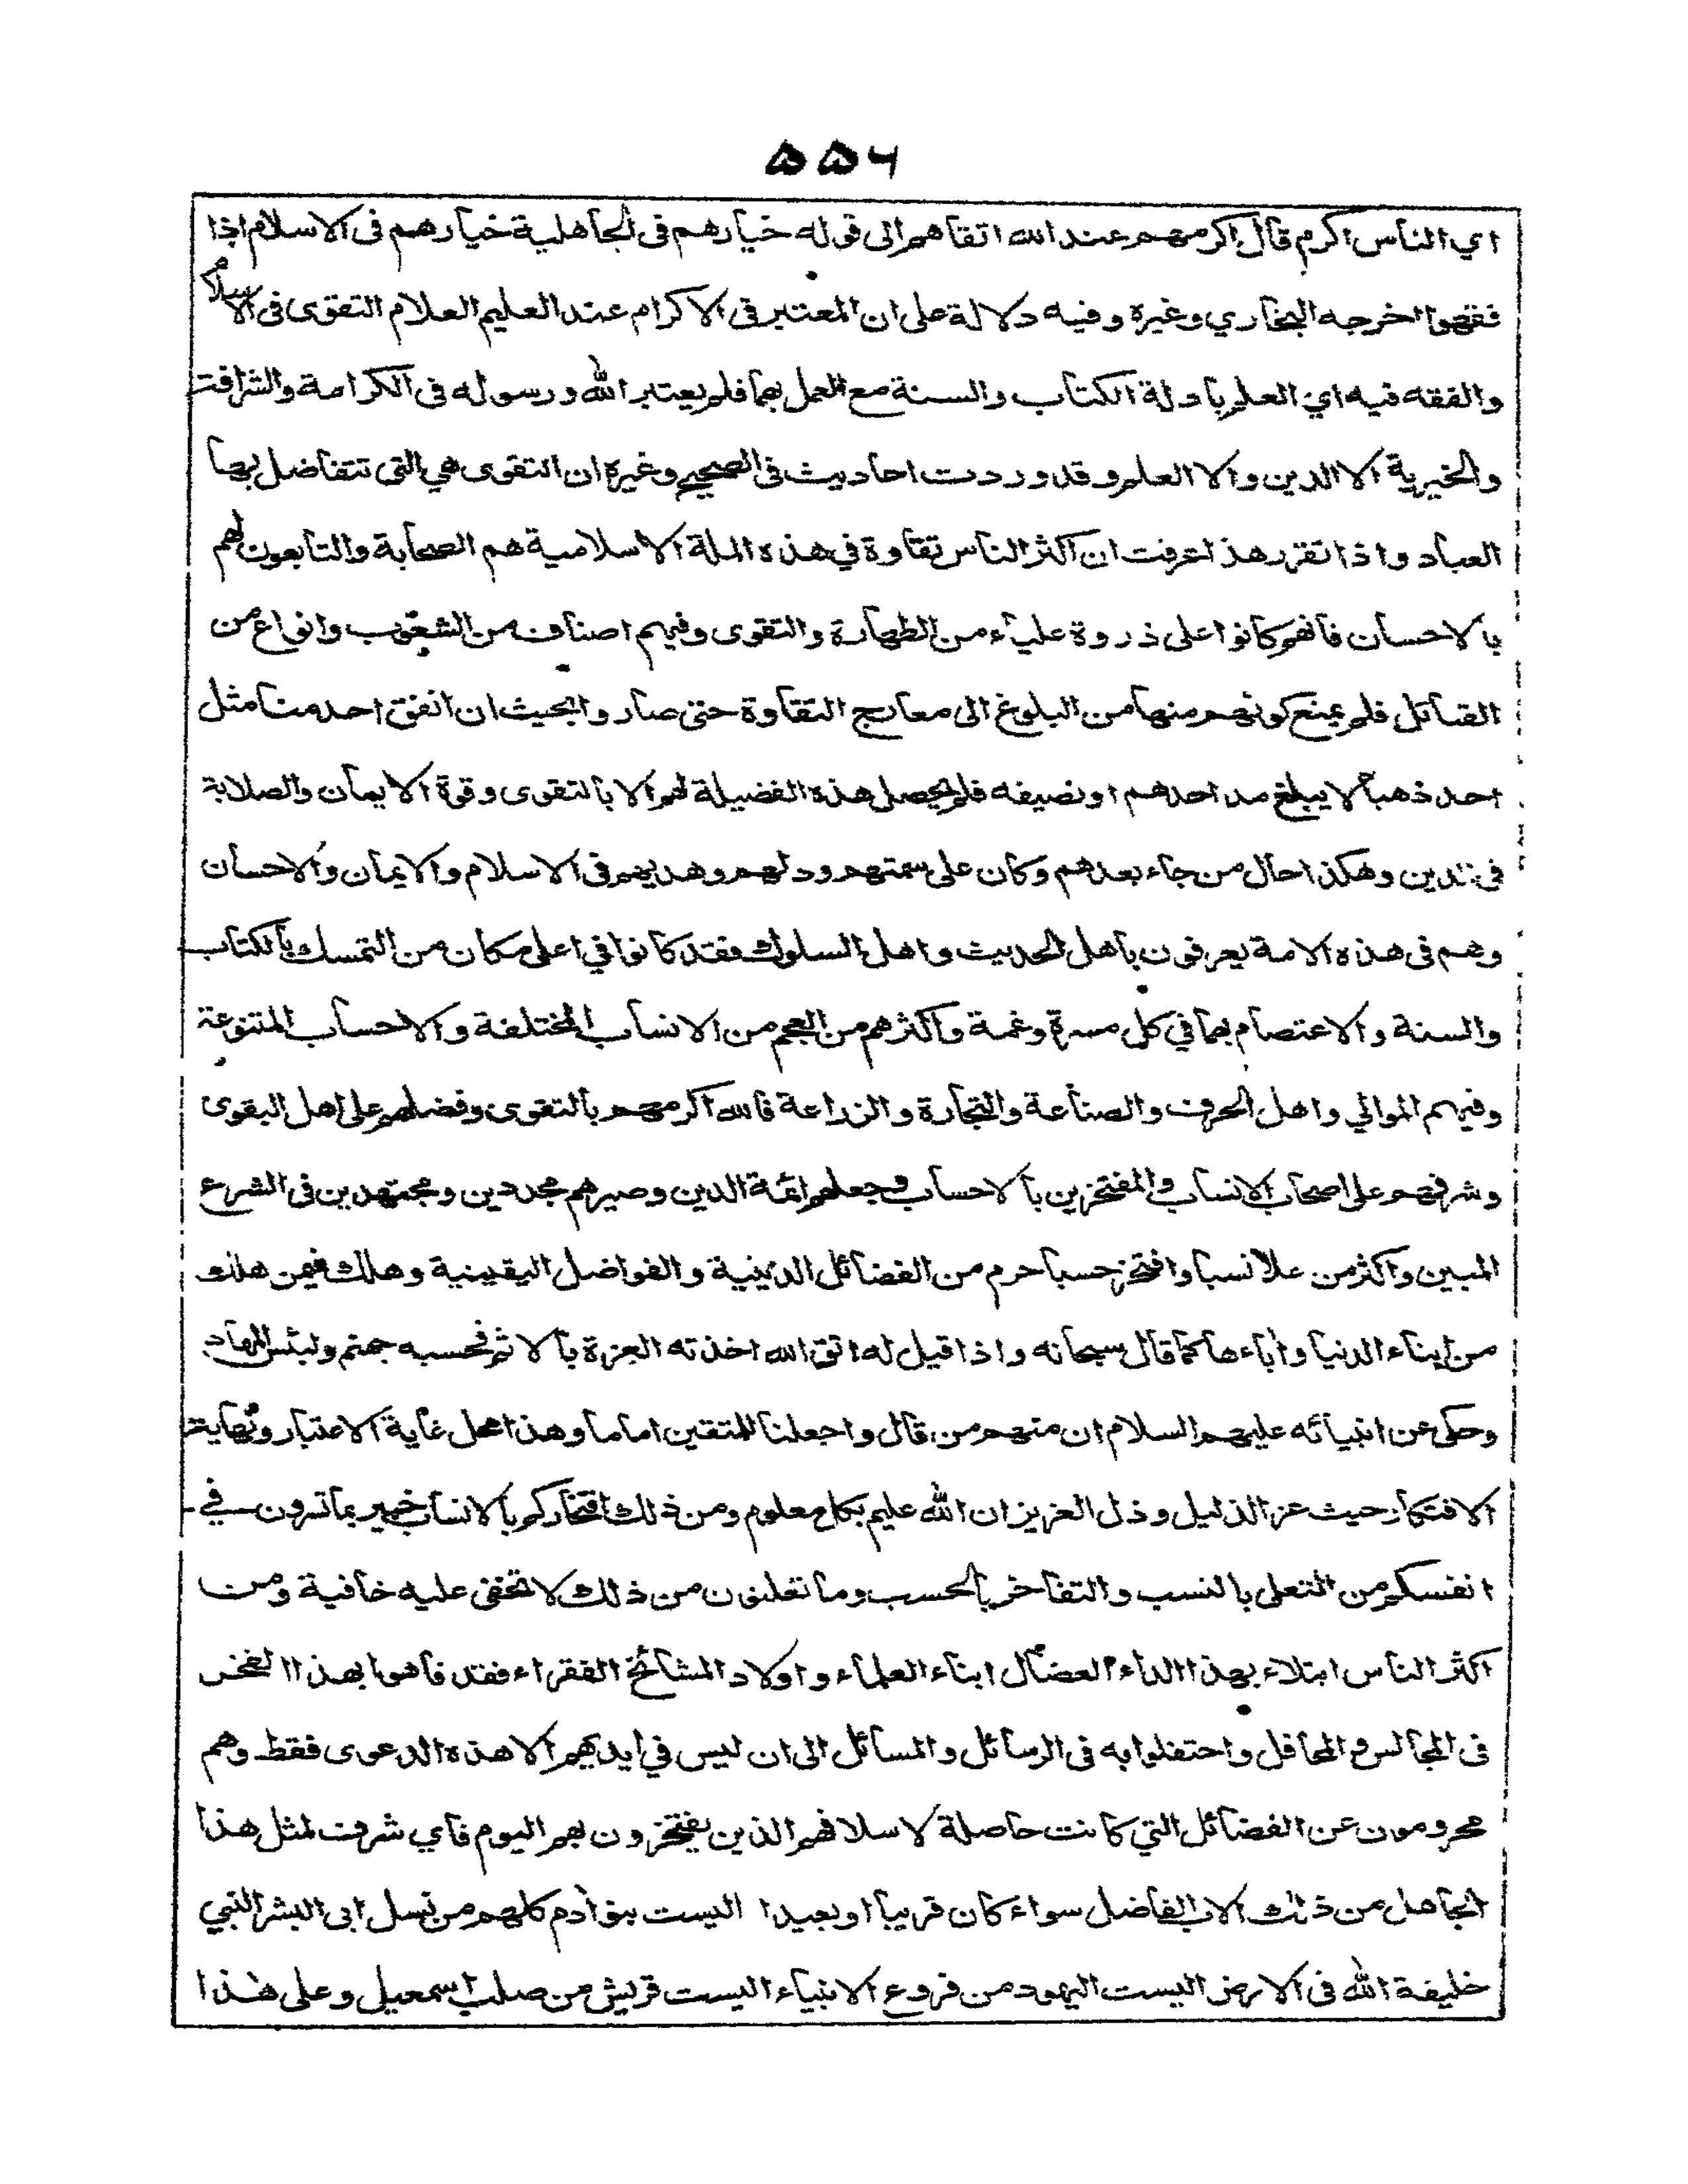 ۵۵۶
اي الناس اكرم قال اكرمهم عند الله اتقاهم الى قوله خيارهم فى الجاهلية خيارهم فى الاسلام اذا
فقهوا اخرجه البخاري وغيره وفيه دلالة على ان المعتبر فى الاكرام عند العليم العلام التقوى فى الاسلام
والفقه فيه اي العلم بادلة الكتاب والسنة مع العمل بهما فلم يعتبر الله ورسوله فى الكرامة والشرافة
والخيرية الا الدين والا العلم وقد وردت احاديث فى الصحيح وغيره ان التقوى هي التى تتفاضل بها
العباد واذا تقرر هذا عرفت ان اكثر الناس تقاوة في هذه الملة الاسلامية هم الصحابة والتابعون لهم
بالاحسان فانهم كانوا على ذروة علياء من الطهارة والتقوى وفيهم اصناف من الشعوب وانواع من
القبائل فلم يمنع كونهم منها من البلوغ الى معارج التقاوة حتى صاروا بحيث ان انفق احد منا مثل
احد ذهبا لا يبلغ مد احدهم او نصيفه فلم يحصل هذه الفضيلة لهم الا بالتقوى وقوة الايمان والصلابة
فى الدين وهكذا حال من جاء بعدهم وكان على سمتهم ودلهم وهديهم فى الاسلام والايمان والاحسان
وهم فى هذه الامة يعرفون باهل الحديث واهل السلوك فقد كانوا في اعلى مكان من التمسك بالكتاب
والسنة والاعتصام بهما في كل مسرة وغمة واكثرهم من العجم من الانساب المختلفة والاحساب المتنوعة
وفيهم الموالي واهل الحرف والصناعة والتجارة والزراعة فالله اكرمهم بالتقوى وفضلهم على اهل البقوى
وشرفهم على اصحاب الانساب والمفتخرين بالاحساب وجعلهم ائمة الدين وصيرهم مجددين ومجتهدين فى الشرع
المبين واكثر من علا نسبا وافتخر حسبا حرم من الفضائل الدينية والفواضل اليقينية وهلك فيمن هلك
من ابناء الدنيا وآباءها كما قال سبحانه واذا قيل له اتق الله اخذته العزة بالاثم فحسبه جهنم ولبئس المهاد
وحكى عن انبيائه عليهم السلام ان منهم من قال واجعلنا للمتقين اماما وهذا محل غاية الاعتبار ونهاية
الافتكار حيث عز الذليل وذل العزيز ان الله عليم بكل معلوم ومن ذلك افتخاركم بالانساب خبير بما تسرون في
انفسكم من التعلى بالنسب والتفاخر بالحسب وما تعلنون من ذلك لا تخفى عليه خافية ومن
اكثر الناس ابتلاء بهذا الداء العضال ابناء العلماء واولاد المشائخ الفقراء فقد فاهوا بهذا الفخر
فى المجالس والمحافل واحتفلوا به فى الرسائل والمسائل الى ان ليس في ايديهم الا هذه الدعوى فقط وهم
محرومون عن الفضائل التي كانت حاصلة لاسلافهم الذين يفتخرون بهم اليوم فاي شرف لمثل هذا
الجاهل من ذلك الاب الفاضل سواء كان قريبا او بعيدا اليست بنو آدم كلهم من نسل ابى البشر النبي
خليفة الله فى الارض اليست اليهود من فروع الانبياء اليست قريش من صلب اسمعيل وعلى هذا